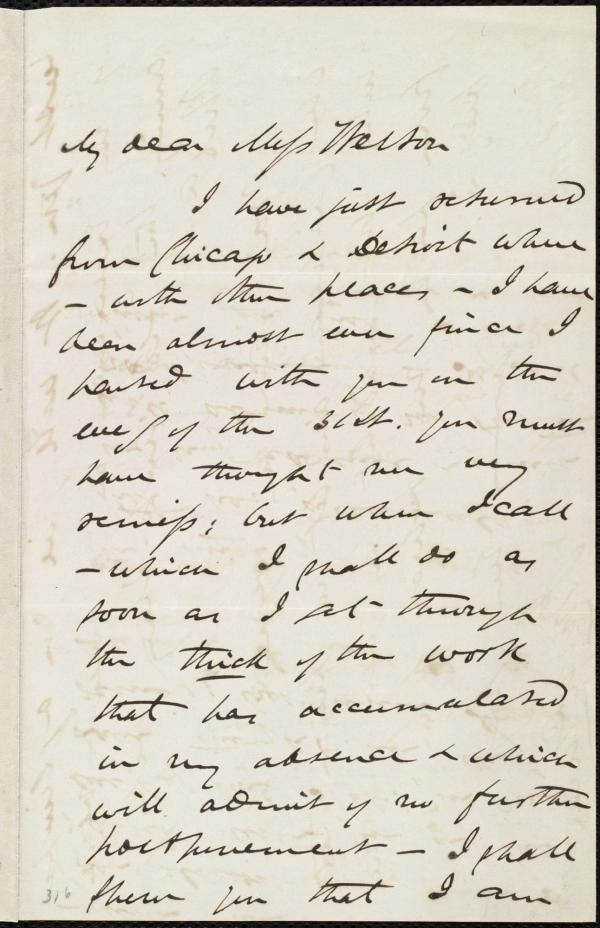 My dear Miss Weston
I have just returned
from Chicago & Detroit where
- with other places - I have
been almost ever since I
parted with you on the
eveg of the 31st. You must
have thought me very
remiss; but when I call
- which I shall do as
soon as I get through
the thick of the work
that has accumulated
in my absence & which
will admit of no further
postponement - I shall
shew you that I am
316